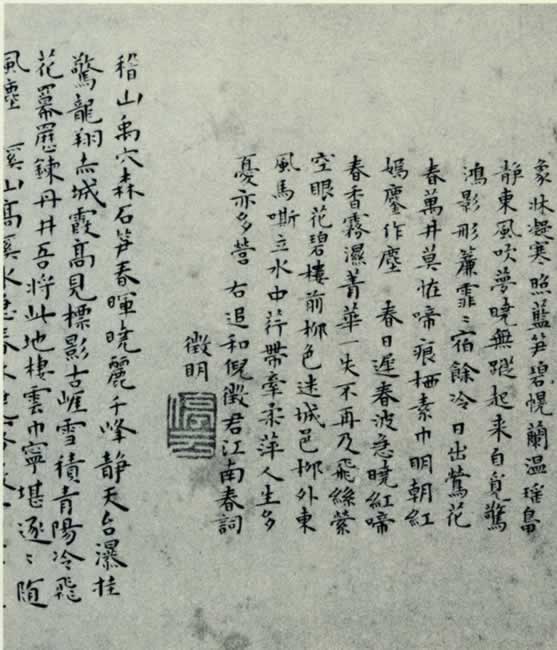 象牀凝寒照藍笋碧幌蘭温瑶鳧
静東風吹夢曉無蹤起来自覓驚
鴻影形簾霏〻宿餘冷日出鶯花
春萬井莫怪啼痕栖素巾明朝紅
嫣鏖作塵　春日遲春波急曉紅啼
春香霧濕菁華一失不再及飛絲縈
空眼花碧樓前柳色迷城邑柳外東
風馬嘶立水中荇帶牽柔萍人生多
憂亦多營　右追和倪徵君江南春詞
徵明
停雲
稽山禹穴森石笋春暉曉麗千峰静天台瀑挂
驚龍翔赤城霞高見標影古崖雪積青陽冷飛
花羃䍥鍊丹井吾將此地棲雲巾寧堪逐〻随
風塵　溪山高溪水急春水